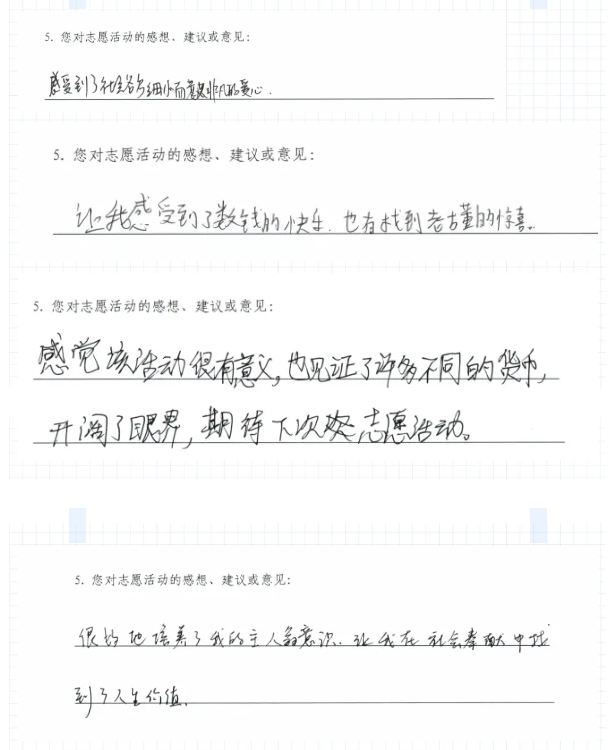 5. 您对志愿活动的感想、建议或意见:
感受到了社会各细小而意非凡的爱心.
5. 您对志愿活动的感想、建议或意见:
让我感受到了数钱的快乐. 也有找到老古董的惊喜.
5. 您对志愿活动的感想、建议或意见:
感觉该活动很有意义,也见证了许多不同的货币,
开阔了眼界,期待下次志愿活动。
5. 您对志愿活动的感想、建议或意见:
很好地培养了我的主人翁意识. 让我在社会奉献中找
到了人生价值.